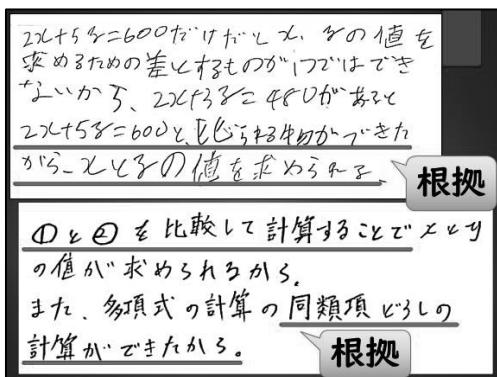 2x+5y=600だけだとx、yの値を
求めるための差とするものが1つではでき
ないから、2x+3y=480があると
2x+5y=600と、比べられる物ができた
から、xとyの値を求められる。
根拠
①と②を比較して計算することでxとy
の値が求められるから。
また、多項式の計算の同類項どうしの
計算ができたから。
根拠